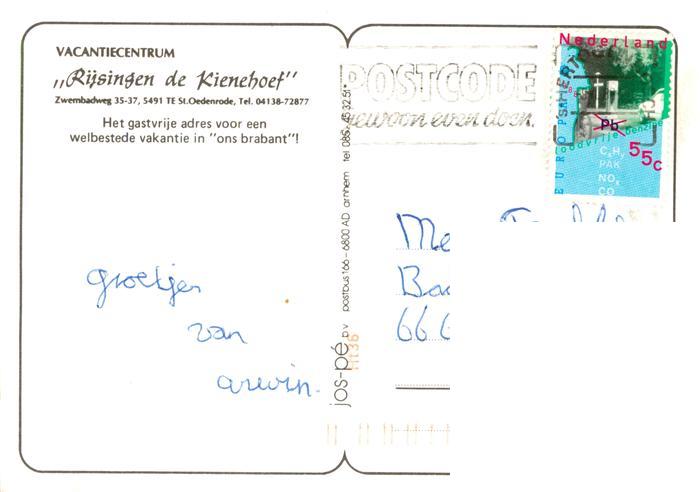 VACANTIECENTRUM
,,Rijsingen de Kienehoef"
Zwembadweg 35-37, 5491 TE St.Oedenrode, Tel. 04138-72877
Het gastvrije adres voor een
welbestede vakantie in "ons brabant"!
groetjes
van
arwin.
jos-pé b.v. postbus 166 - 6800 AD arnhem tel. 085 - 45 32 51*
POSTCODE
gewoon even doen.
Nederland
EUROPA
Pb
loodvrije benzine
55c
CxHy
PAK
NOx
CO
Me
Ba
66 6